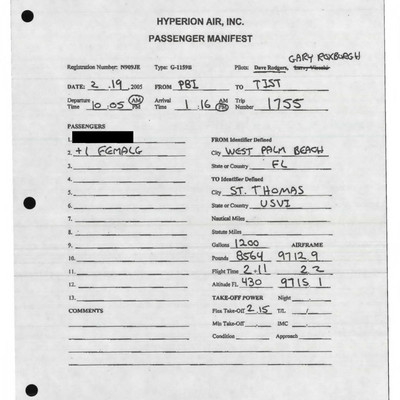 HYPERION AIR, INC.
PASSENGER MANIFEST
GARY ROXBURGH
Registration Number: N909JE Type: G-1159B Pilots: Dave Rodgers, Larry Visoski
DATE: 2 . 19 , 2005 FROM PBI TO TIST
Departure Time 10 . 05 AM PM Arrival Time 1 . 16 AM PM Trip Number 1755
PASSENGERS
1.
FROM Identifier Defined
2. +1 FEMALE
City WEST PALM BEACH
3.
State or Country FL
4.
TO Identifier Defined
5.
City ST. THOMAS
6.
State or Country USVI
7.
Nautical Miles
8.
Statute Miles
9.
Gallons 1200 AIRFRAME
10.
Pounds 8564 9712 9
11.
Flight Time 2 - 11 2 2
12.
Altitude FL 430 9715 1
13.
TAKE-OFF POWER Night
COMMENTS
Flex Take-Off 2.15 T/L /
Min Take-Off IMC
Condition Approach